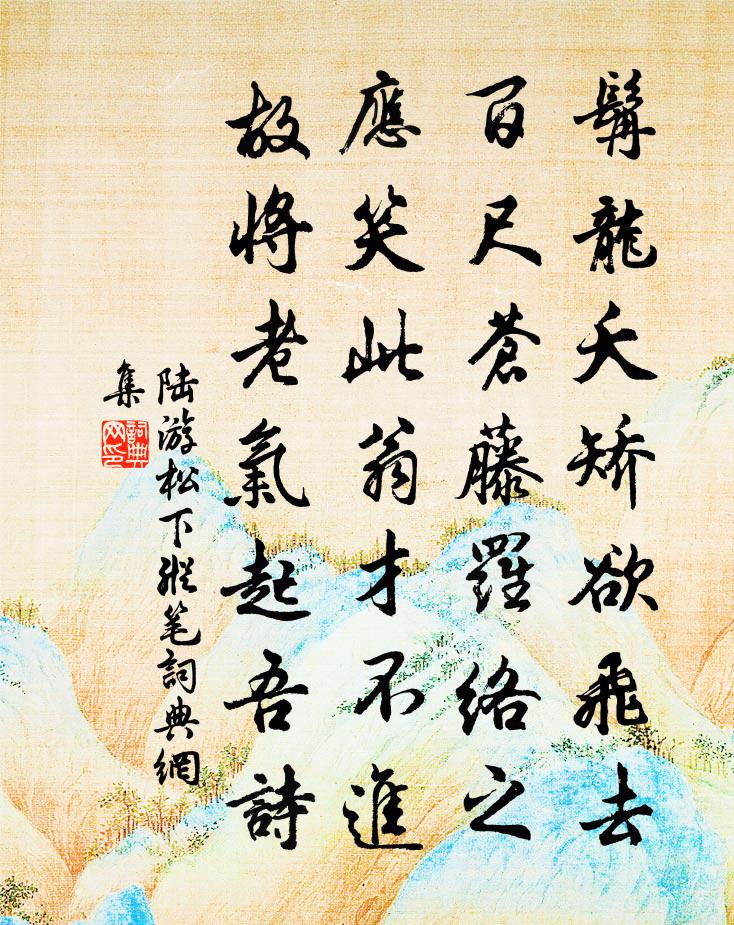 髯龍夭矯欲飛去
百尺蒼藤羅絡之
應笑此翁才不進
故將老氣起吾詩
陸游松下縱笔詞典網
集
詞典
网印